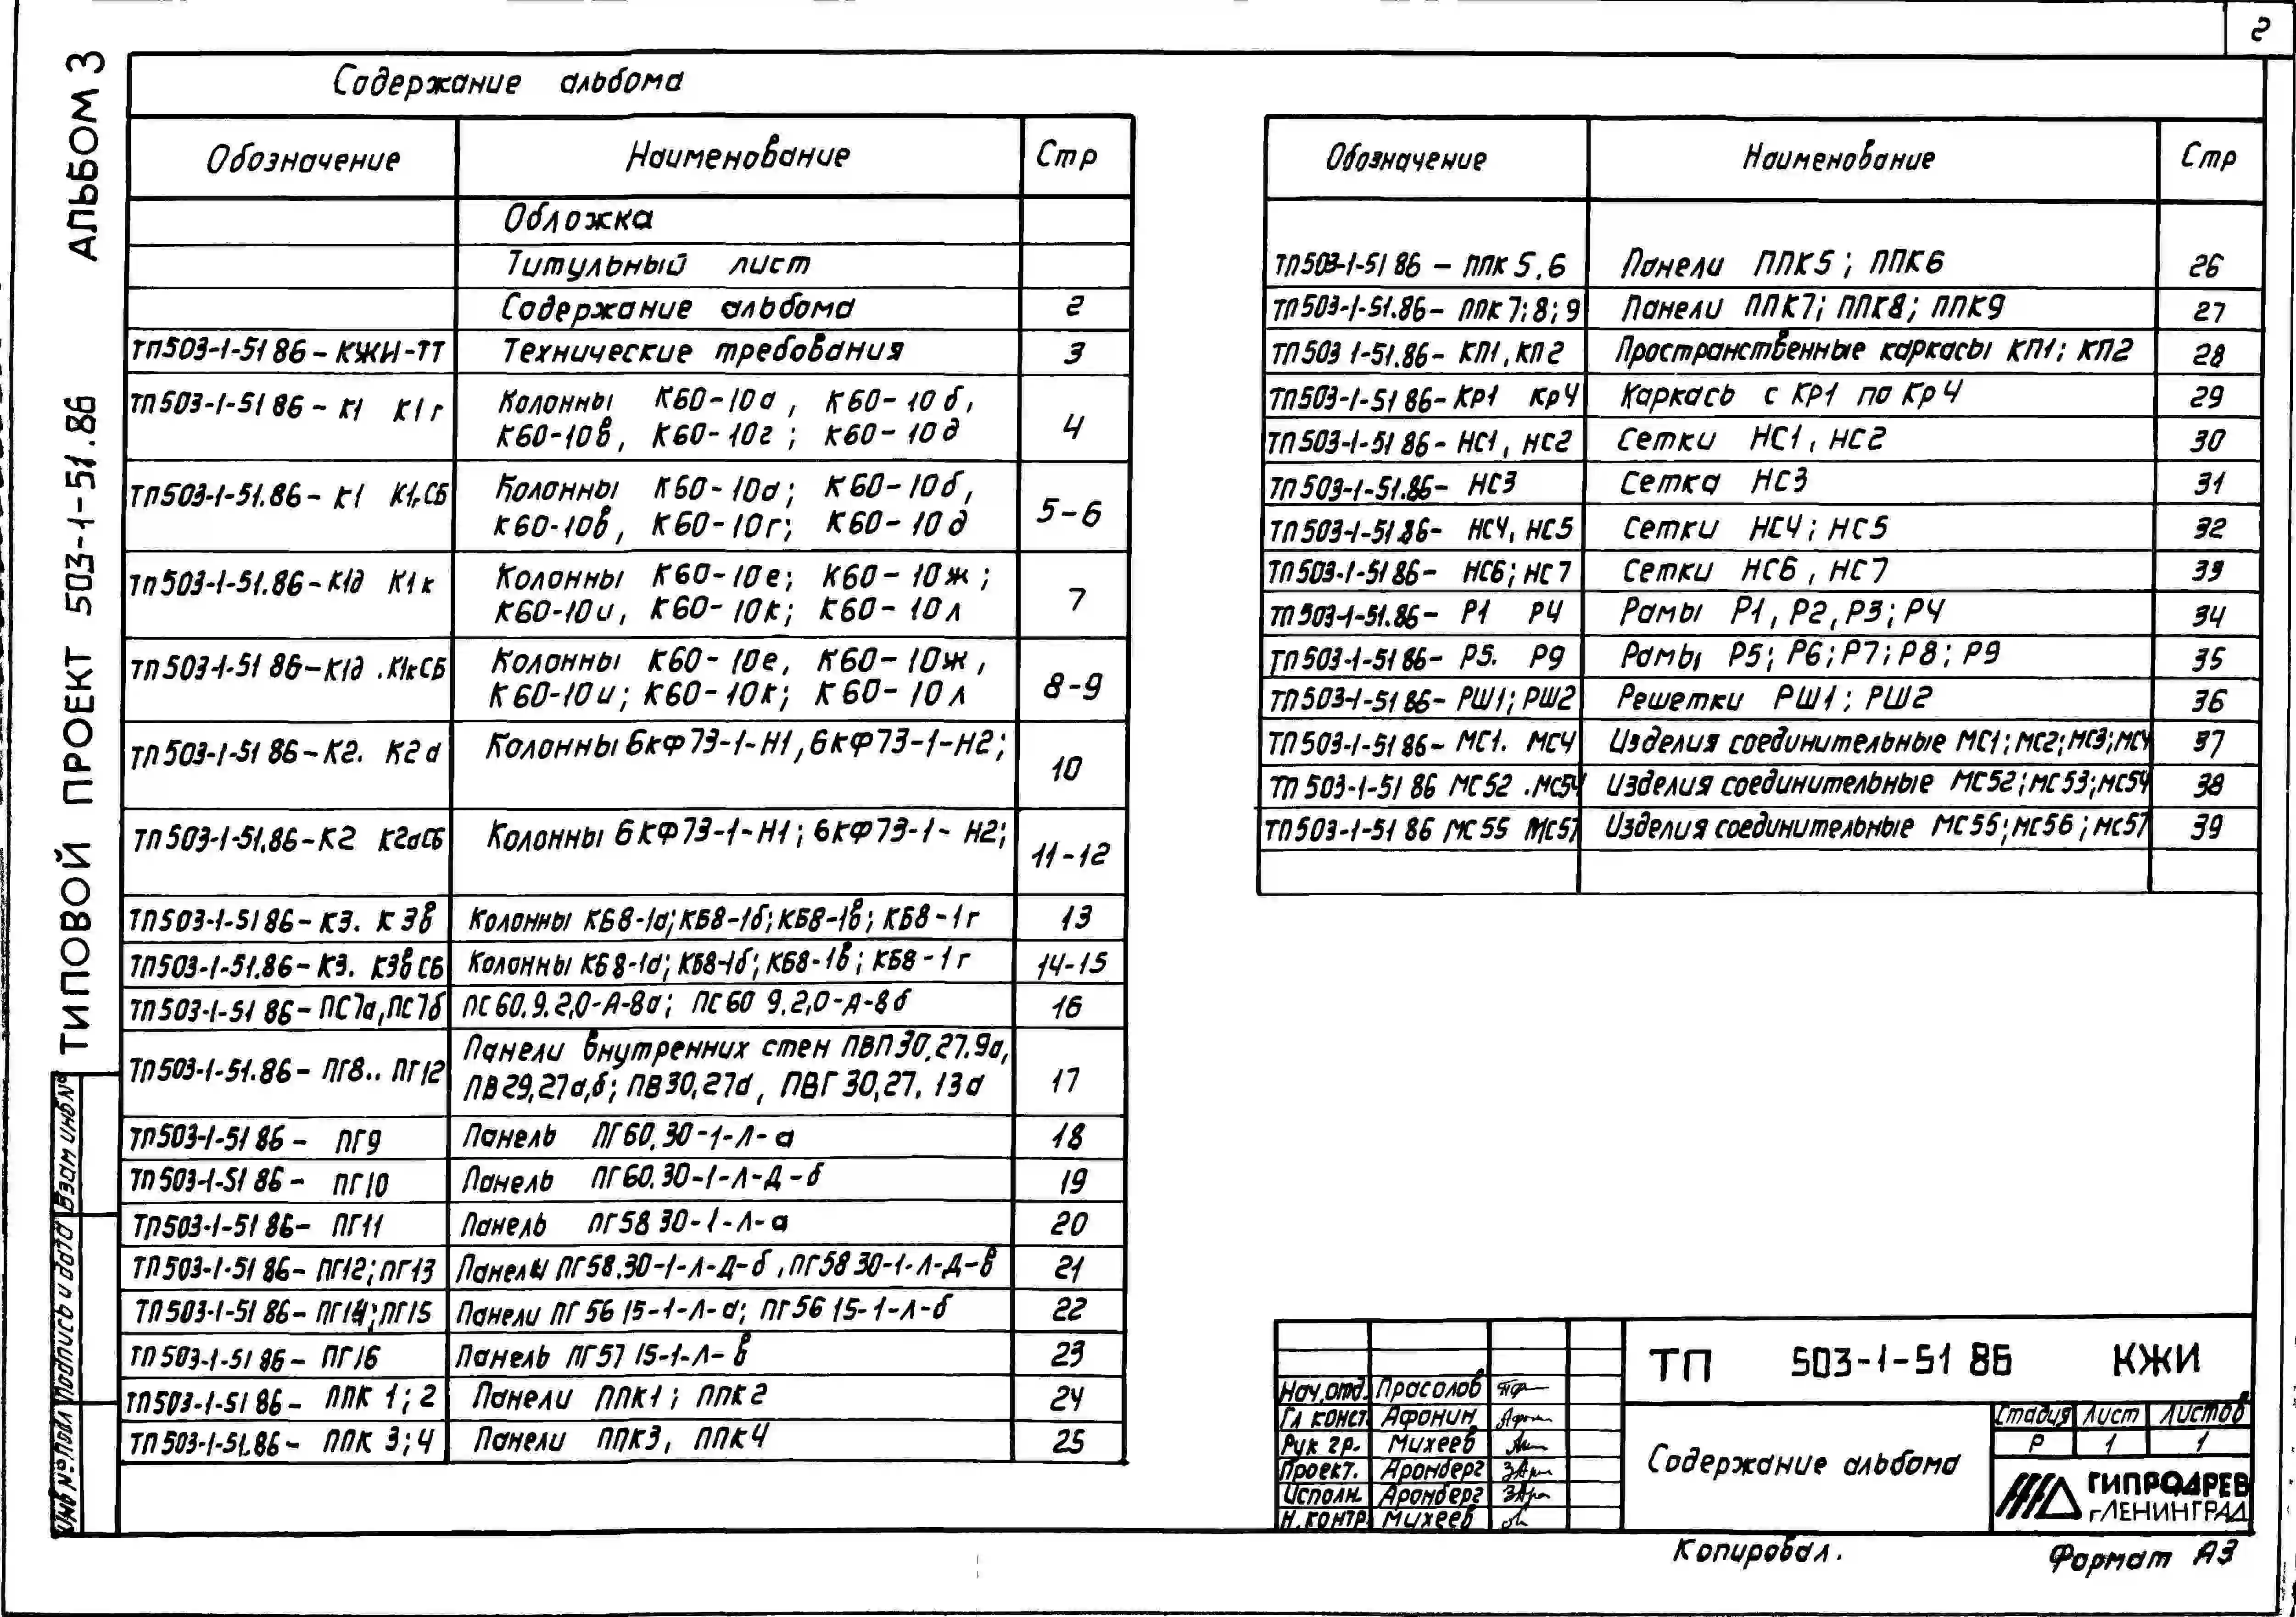 2
АЛЬБОМ 3
ТИПОВОЙ ПРОЕКТ 503-1-51.86
Содержание альбома
Обозначение Наименование Стр
Обложка
Титульный лист
Содержание альбома 2
ТП503-1-51 86-КЖИ-ТТ Технические требования 3
ТП503-1-51 86-К1 К1г Колонны К60-10а, К60-10б,
К60-10в, К60-10г; К60-10д 4
ТП503-1-51.86-К1 К1гСБ Колонны К60-10а; К60-10б,
К60-10в, К60-10г; К60-10д 5-6
ТП503-1-51.86-К1д К1к Колонны К60-10е; К60-10ж;
К60-10и, К60-10к; К60-10л 7
ТП503-1-51 86-К1д .К1кСБ Колонны К60-10е, К60-10ж,
К60-10и; К60-10к; К60-10л 8-9
ТП503-1-51 86-К2. К2а Колонны 6КФ73-1-Н1, 6КФ73-1-Н2; 10
ТП503-1-51.86-К2 К2аСБ Колонны 6КФ73-1-Н1; 6КФ73-1-Н2; 11-12
ТП503-1-51 86-К3. К3в Колонны КБ8-1а; КБ8-1б; КБ8-1в; КБ8-1г 13
ТП503-1-51.86-К3. К3вСБ Колонны КБ8-1а; КБ8-1б; КБ8-1в; КБ8-1г 14-15
ТП503-1-51 86-ПС7а, ПС7б ПС60.9.2,0-А-8а; ПС60 9.2,0-А-8б 16
ТП503-1-51.86-ПГ8.. ПГ12 Панели внутренних стен ПВП30.27.9а,
ПВ29.27а,б; ПВ30,27а, ПВГ30,27. 13а 17
ТП503-1-51 86- ПГ9 Панель ПГ60.30-1-Л-а 18
ТП503-1-51 86- ПГ10 Панель ПГ60.30-1-Л-Д-б 19
ТП503-1-51 86- ПГ11 Панель ПГ58 30-1-Л-а 20
ТП503-1-51 86-ПГ12; ПГ13 Панелы ПГ58.30-1-Л-Д-б, ПГ58 30-1-Л-Д-в 21
ТП503-1-51 86-ПГ14; ПГ15 Панели ПГ56 15-1-Л-а; ПГ56 15-1-Л-б 22
ТП503-1-51 86- ПГ16 Панель ПГ57 15-1-Л-в 23
ТП503-1-51 86- ППК 1; 2 Панели ППК1; ППК2 24
ТП503-1-51.86- ППК 3; 4 Панели ППК3, ППК4 25
Обозначение Наименование Стр
ТП503-1-51 86 - ППК 5,6 Панели ППК5; ППК6 26
ТП503-1-51.86- ППК 7; 8; 9 Панели ППК7; ППК8; ППК9 27
ТП503 1-51.86- КП1, КП2 Пространственные каркасы КП1; КП2 28
ТП503-1-51 86-Кр1 Кр4 Каркась с КР1 по Кр4 29
ТП503-1-51 86-НС1, НС2 Сетки НС1, НС2 30
ТП503-1-51.86- НС3 Сетка НС3 31
ТП503-1-51 86- НС4, НС5 Сетки НС4; НС5 32
ТП503-1-51 86- НС6; НС7 Сетки НС6, НС7 33
ТП503-1-51.86- Р1 Р4 Рамы Р1, Р2, Р3; Р4 34
ТП503-1-51 86- Р5. Р9 Рамы Р5; Р6; Р7; Р8; Р9 35
ТП503-1-51 86- РШ1; РШ2 Решетки РШ1; РШ2 36
ТП503-1-51 86- МС1. МС4 Изделия соединительные МС1; МС2; МС3; МС4 37
ТП 503-1-51 86 МС52 .МС54 Изделия соединительные МС52; МС53; МС54 38
ТП503-1-51 86 МС55 МС57 Изделия соединительные МС55; МС56; МС57 39
Взам инв№
Подпись и дата
Инв №подл
ТП 503-1-51 86 КЖИ
Нач.отд. Прасолов
Гл конст. Афонин
Рук гр. Михеев
Проект. Аронберг
Исполн. Аронберг
Н.контр Михеев
Содержание альбома
Стадия Лист Листов
Р 1 1
ГИПРОДРЕВ
г.ЛЕНИНГРАД
Копировал.
Формат А3